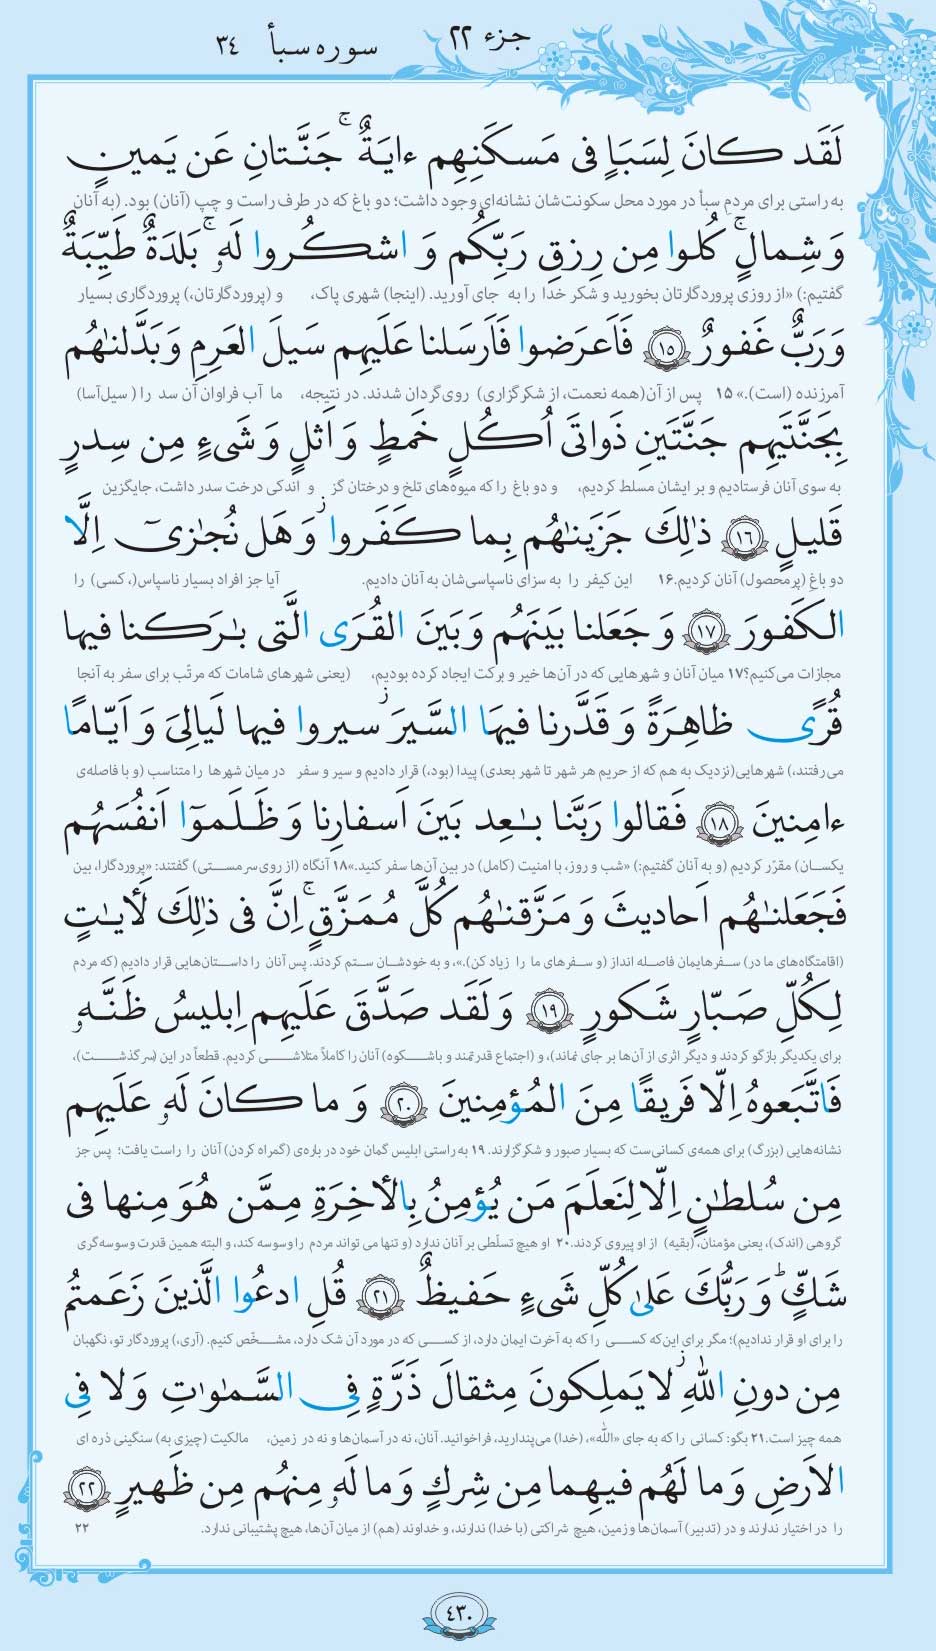 جزء ٢٢
سوره سبأ ٣٤
لَقَد كانَ لِسَبَاٍ فى مَسكَنِهِم ءايَةٌ ۚ جَنَّتانِ عَن يَمينٍ
به راستی برای مردم سبأ در مورد محل سکونت‌شان نشانه‌ای وجود داشت؛ دو باغ که در طرف راست و چپ (آنان) بود. (به آنان
وَ شِمالٍ ۚ كُلوا مِن رِزقِ رَبِّكُم وَ اشكُروا لَهو ۚ بَلدَةٌ طَيِّبَةٌ
گفتیم:) «از روزی پروردگارتان بخورید و شکر خدا را به جای آورید. (اینجا) شهری پاک، و (پروردگارتان،) پروردگاری بسیار
وَ رَبٌّ غَفورٌ ١٥ فَاَعرَضوا فَاَرسَلنا عَلَيهِم سَيلَ العَرِمِ وَ بَدَّلنٰهُم
آمرزنده (است).» ۱۵ پس از آن (همه نعمت، از شکرگزاری) روی‌گردان شدند. در نتیجه، ما آب فراوان آن سد را (سیل‌آسا)
بِجَنَّتَيهِم جَنَّتَينِ ذَواتَى اُكُلٍ خَمطٍ وَ اَثلٍ وَ شَىءٍ مِن سِدرٍ
به سوی آنان فرستادیم و بر ایشان مسلط کردیم، و دو باغ را که میوه‌های تلخ و درختان گز و اندکی درخت سدر داشت، جایگزین
قَليلٍ ١٦ ذٰلِكَ جَزَينٰهُم بِما كَفَروا ۖ وَ هَل نُجٰزىٓ اِلَّا
دو باغ (پرمحصول) آنان کردیم.۱۶ این کیفر را به سزای ناسپاسی‌شان به آنان دادیم. آیا جز افراد بسیار ناسپاس(، کسی) را
الكَفورَ ١٧ وَ جَعَلنا بَينَهُم وَ بَينَ القُرَى الَّتى بٰرَكنا فيها
مجازات می‌کنیم؟۱۷ میان آنان و شهرهایی که در آن‌ها خیر و برکت ایجاد کرده بودیم، (یعنی شهرهای شامات که مرتّب برای سفر به آنجا
قُرًى ظاهِرَةً وَ قَدَّرنا فيهَا السَّيرَ ۖ سيروا فيها لَيالِىَ وَ اَيّامًا
می‌رفتند،) شهرهایی (نزدیک به هم که از حریم هر شهر تا شهر بعدی) پیدا (بود،) قرار دادیم و سیر و سفر در میان شهرها را متناسب (و با فاصله‌ی
ءامِنينَ ١٨ فَقالوا رَبَّنا بٰعِد بَينَ اَسفارِنا وَ ظَلَموٓا اَنفُسَهُم
یکسان) مقرّر کردیم (و به آنان گفتیم:) «شب و روز، با امنیت (کامل) در بین آن‌ها سفر کنید.»۱۸ آنگاه (از روی سرمستی) گفتند: «پروردگارا، بین
فَجَعَلنٰهُم اَحاديثَ وَ مَزَّقنٰهُم كُلَّ مُمَزَّقٍ ۚ اِنَّ فى ذٰلِكَ لَأيٰتٍ
(اقامتگاه‌های ما در) سفرهایمان فاصله انداز (و سفرهای ما را زیاد کن).»، و به خودشان ستم کردند. پس آنان را داستان‌هایی قرار دادیم (که مردم
لِكُلِّ صَبّارٍ شَكورٍ ١٩ وَ لَقَد صَدَّقَ عَلَيهِم اِبليسُ ظَنَّهو
برای یکدیگر بازگو کردند و دیگر اثری از آن‌ها بر جای نماند)، و (اجتماع قدرتمند و باشکوه) آنان را کاملاً متلاشی کردیم. قطعاً در این (سرگذشت)،
فَاتَّبَعوهُ اِلّا فَريقًا مِنَ المُؤمِنينَ ٢٠ وَ ما كانَ لَهو عَلَيهِم
نشانه‌هایی (بزرگ) برای همه‌ی کسانی‌ست که بسیار صبور و شکرگزارند. ۱۹ به راستی ابلیس گمان خود در باره‌ی (گمراه کردن) آنان را راست یافت؛ پس جز
مِن سُلطٰنٍ اِلّا لِنَعلَمَ مَن يُؤمِنُ بِالأخِرَةِ مِمَّن هُوَ مِنها فى
گروهی (اندک)، یعنی مؤمنان، (بقیه) از او پیروی کردند.۲۰ او هیچ تسلّطی بر آنان ندارد (و تنها می تواند مردم را وسوسه کند، و البته همین قدرت وسوسه‌گری
شَكٍّ ۗ وَ رَبُّكَ عَلىٰ كُلِّ شَىءٍ حَفيظٌ ٢١ قُلِ ادعُوا الَّذينَ زَعَمتُم
را برای او قرار ندادیم)؛ مگر برای این‌که کسی را که به آخرت ایمان دارد، از کسی که در مورد آن شک دارد، مشخّص کنیم. (آری،) پروردگار تو، نگهبان
مِن دونِ اللّٰهِ ۖ لا يَملِكونَ مِثقالَ ذَرَّةٍ فِى السَّمٰوٰتِ وَ لا فِى
همه چیز است.۲۱ بگو: کسانی را که به جای «الله»، (خدا) می‌پندارید، فراخوانید. آنان، نه در آسمان‌ها و نه در زمین، مالکیت (چیزی به) سنگینی ذره ای
الاَرضِ وَ ما لَهُم فيهِما مِن شِركٍ وَ ما لَهو مِنهُم مِن ظَهيرٍ ٢٢
را در اختیار ندارند و در (تدبیر) آسمان‌ها و زمین، هیچ شراکتی (با خدا) ندارند، و خداوند (هم) از میان آن‌ها، هیچ پشتیبانی ندارد. ۲۲
٤٣٠